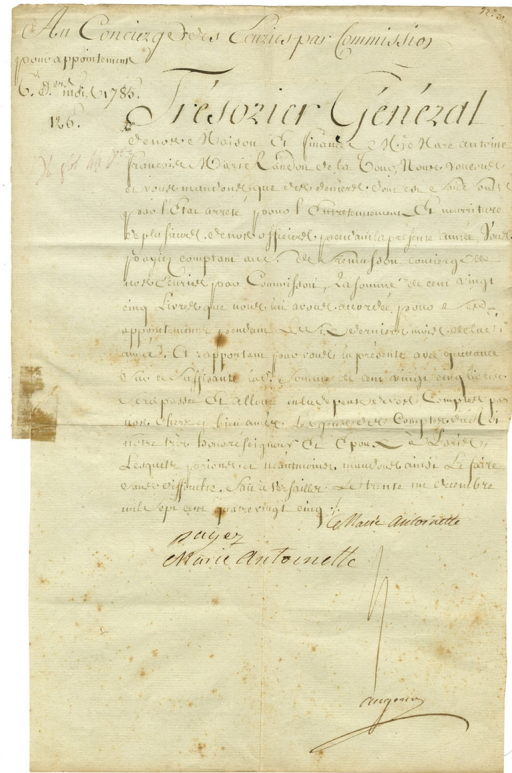 Au Concierge des Ecuries par Commission
pour appointement
6. d.ers mois 1785.
126.
Trésorier Général
de notre Maison Et finances Me Marc antoine
françois Marie Randon de la Tour, Nous voulons
et vous mandons que des deniers dont est fonds
par l'Etat arreté pour l'Entretennement Et nourriture
de plusieurs de nos officiers pendant la présente année, Vous
payiez comptant au S. de concierge de
nos Ecuries par Commission, la somme de cent vingt
cinq Livres que nous lui avons accordée pour ses
appointemens pendant les Six derniers mois de lad.
année. Et rapportant par vous la présente avec quittance
de lui suffisante lad. Somme de cent vingt cinq livres
sera passée Et allouée en la dépense de vos Comptes par
nos Chers et bien amés les gens des Comptes de
notre très honoré seigneur Et Epoux à Paris,
Lesquels prions et neantmoins mandons ainsi le faire
sans difficulté. fait à Versailles Le trente un decembre
mil sept cent quatre vingt cinq ./.
Marie Antoinette
payez
Marie Antoinette
augeard